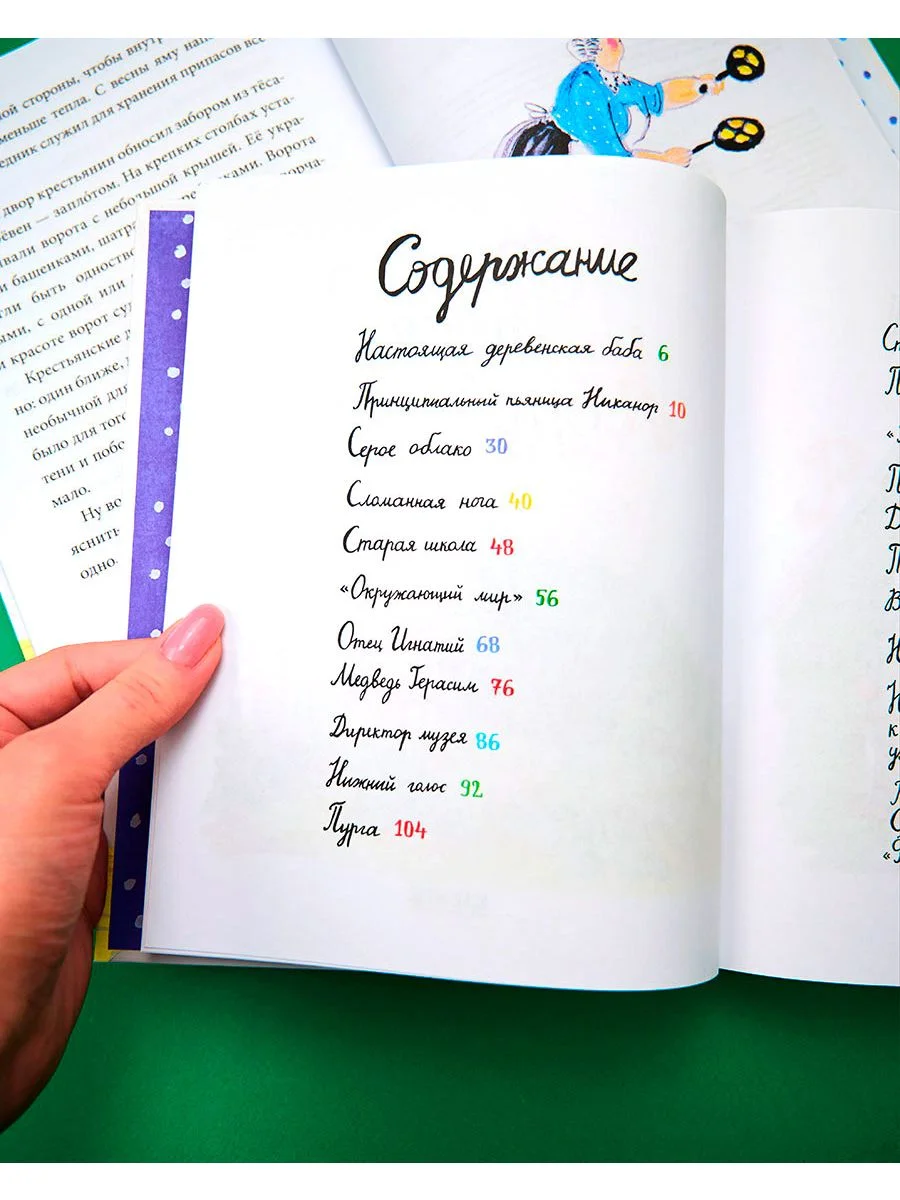 ной стороны, чтобы внут
меньше тепла. С весны яму нап
едник служил для хранения припасов все
двор крестьянин обносил забором из тёса-
вен — запло́том. На крепких столбах уста-
вали ворота с небольшой крышей. Её укра-
и башенками, шатр
Ворота
гли быть одноств
ыми, с одной или
и красоте ворот су
Крестьянские
но: один ближе,
необычной для
было для того
тени и побо
мало.
Ну во
яснить
одно.
Содержание
Настоящая деревенская баба 6
Принципиальный пьяница Никанор 10
Серое облако 30
Сломанная нога 40
Старая школа 48
«Окружающий мир» 56
Отец Игнатий 68
Медведь Герасим 76
Директор музея 86
Нижний голос 92
Пурга 104